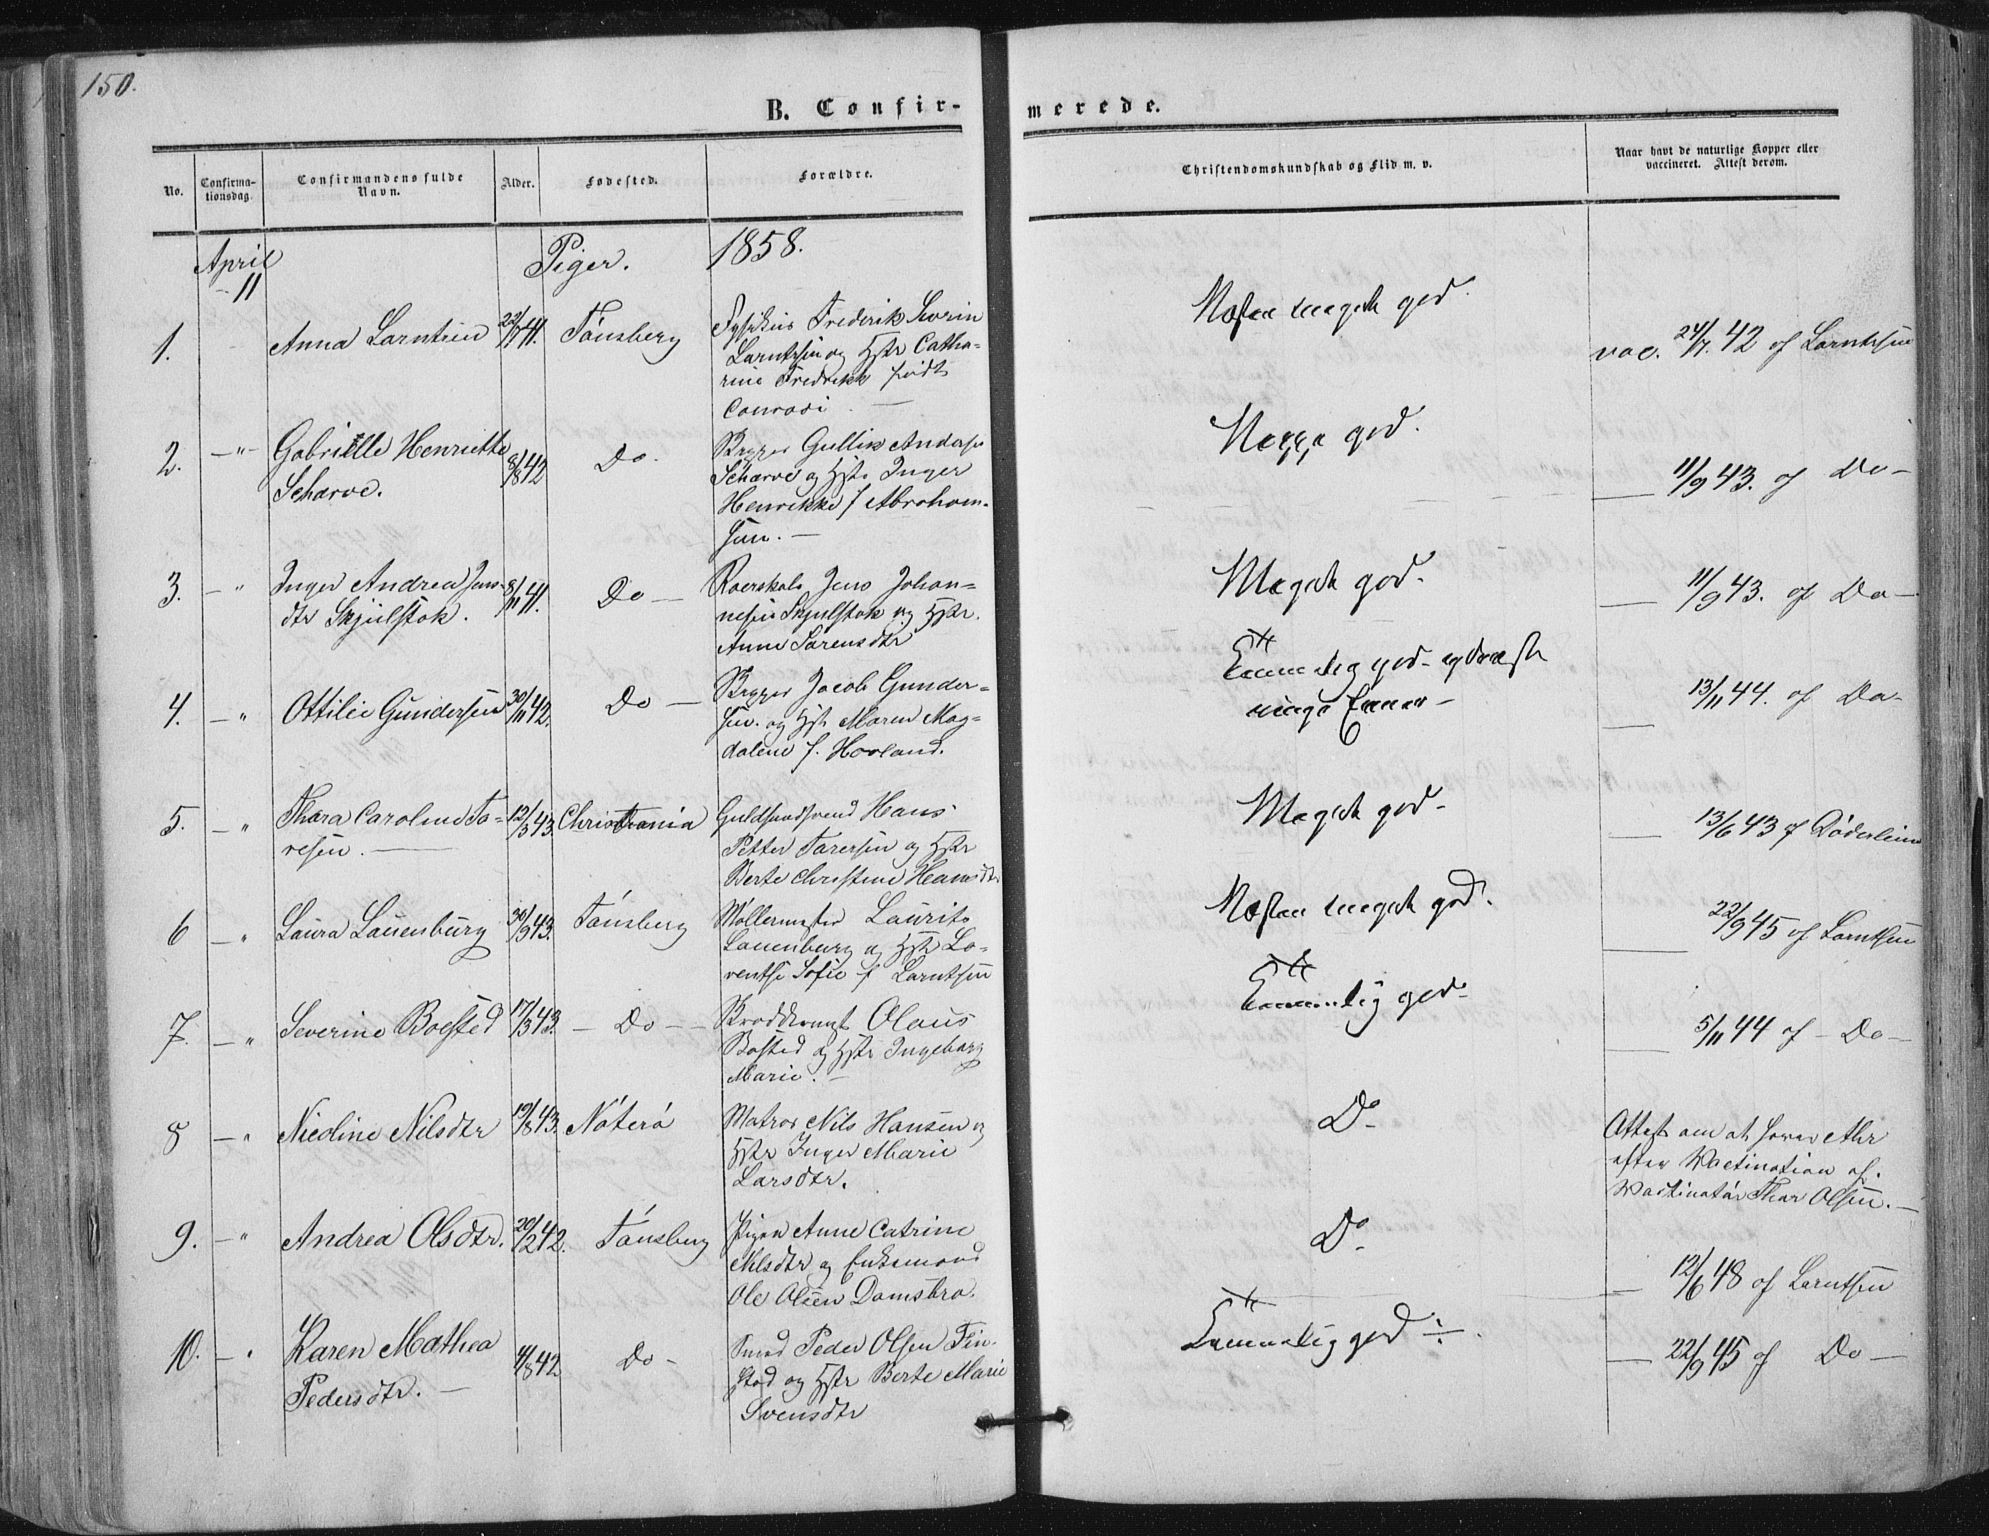 150.
B. Confir-
merede.
No.
Confirma-
tionsdag.
Confirmandens fulde
Navn.
Alder.
Fødested.
Forældre.
Christendomskundskab og Flid m. v.
Naar havt de naturlige Kopper eller
vaccineret. Attest derom.
April
11
Piger.
1858.
1.
Anna Larntsen
22/7 41.
Tönsberg
Fysikus Frederik Severin
Larntsen og Hstr Catha-
rine Fredrikk født
Conradi. —
Næsten meget god.
vac. 24/7. 42 af Larntsen
2.
—"—
Gabrielle Henriette
Scharve.
8/8 42
Do.
Brygger Gullik Anders
Scharve og Hstr Inger
Henrikke f Abraham-
sen. —
god.
— 11/9 43. af Do —
3.
— "
Inger Andrea Jens-
dtr Skjulstok.
8/11 41.
Do —
Jens Johan-
nesen Skjulstok og Hstr.
Anne Sørensdtr
Meget god.
— 11/9 43. af Do —
4.
— "
Ottilie Gundersen
30/11 42.
Do —
Brygger Jacob Gunder-
sen. og Hstr Maren Mag-
dalene f. Hovland.
god
— 13/11 44. af Do —
5.
— "
Thora Caroline To-
resen. —
12/3 43.
Christiania
Guldsmedsvend Hans
Petter Toresen og Hstr
Berte Christine Hansdtr
Meget god —
— 13/6 43 af Döderlein
6
— "
Laura Lauenburg
30/9 43.
Tönsberg
Møllermester Laurits
Lauenburg og Hstr Lo-
rentse Sofie f Larntsen
Næsten meget god.
— 22/9 45 af Larntsen
7.
— "
Severine Boesled
17/3 43.
— Do —
Olaus
Bosted og Hstr Ingeborg
Marie. —
Temmelig god —
— 5/11 44 af — Do —
8
— "
Nicoline Nilsdtr
19/8 43.
Nöterö
Matros Nils Hansen og
Hstr Inger Marie
Larsdtr.
Do
Attest om at
efter Vactination af.
Vactinatör Thor Olsen. —
9.
— "
Andrea Olsdtr.
20/2 42.
Tönsberg
Pigen Anne Catrine
Nilsdtr og Enkemand
Ole Olsen Damsbro.
Do
— 12/6 48 af Larntsen
10.
— "
Karen Mathea
Pedersdtr. —
4/8 42
Do —
Smed Peder Olsen Fin-
stad og Hstr Berte Marie
Svensdtr
Temmelig god ÷.
— 22/9 45 af Do —